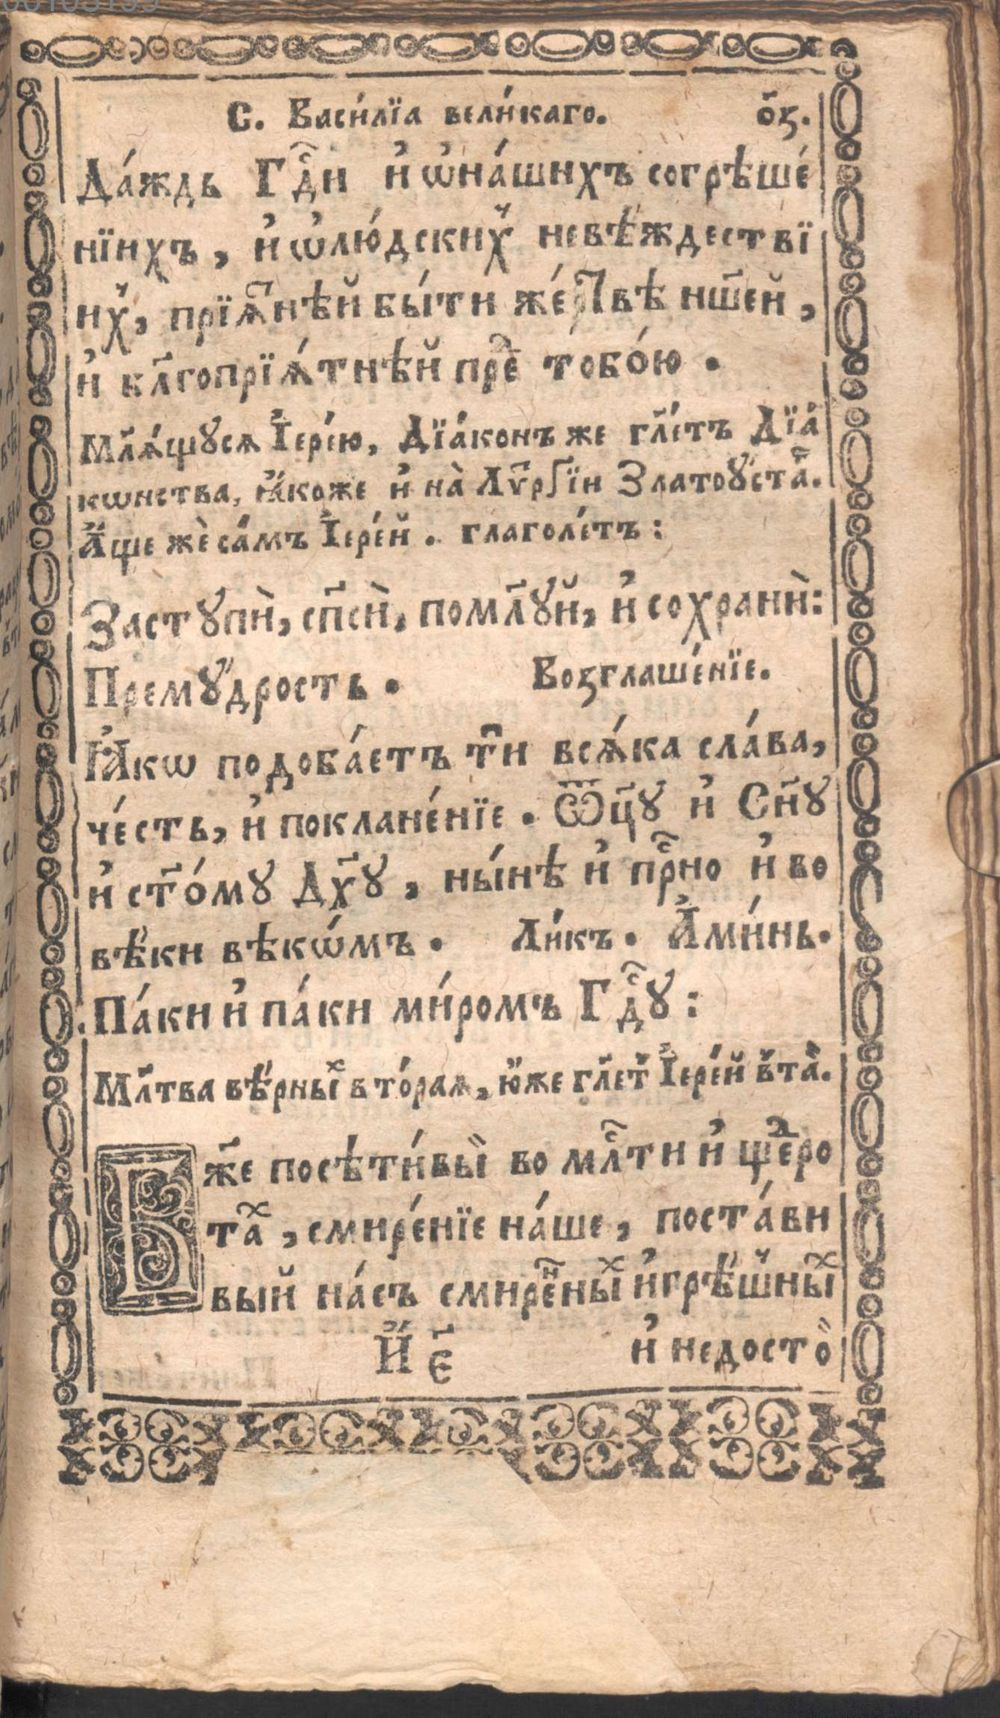 С. Васи́лїа вели́каго. о҃ꙁ.
Да́ждь Гдⷭ҇и и҆ ѡ҆ на́шихъ согрѣше́
нїихъ, и҆ ѡ҆ лю́дскихⷯ невѣ́ждествї
ихⷯ, прїѧ́тнѣй бы́ти же́ртвѣ нш҃ей,
и҆ бл҃гопрїѧ́тнѣй преⷣ тобо́ю.
Мл҃ѧ́щꙋсѧ І҆ере́ю, Дїа́конъ же гл҃етъ Дїа́
кѡнства, ꙗ҆́коже и҆ на̀ Лѵⷮргїи Златоꙋ́стаⷢ.
А҆́ще жѐ са́мъ І҆ере́й. глаголе́тъ:
Застꙋпѝ, сп҃сѝ, помл҃ꙋй, и҆ сохранѝ:
Премꙋ́дрость. Воꙁглаше́нїе.
Ꙗ҆́кѡ подоба́етъ тѝ всѧ́ка сла́ва,
че́сть, и҆ поклане́нїе. Ѿц҃ꙋ и҆ Сн҃ꙋ
и҆ ст҃о́мꙋ Дх҃ꙋ, ны́нѣ и҆ прⷭ҇но и҆ во
вѣ́ки вѣкѡ́мъ. Ли́къ. А҆ми́нь.
Па́ки и҆ па́ки ми́ромъ Гдⷭ҇ꙋ:
Мл҃тва вѣ́рныⷯ вто́раѧ, ю҆́же гл҃етⷮ І҆ере́й втаⷤ.
Бж҃е посѣти́вый во млⷭ҇ти и҆ щеⷣро
таⷯ, смире́нїе на́ше, поста́ви
вый на́съ смиреⷩ҇ныⷯ и҆ грѣ́шныⷯ
И҆́й є҃ и҆ недосто́